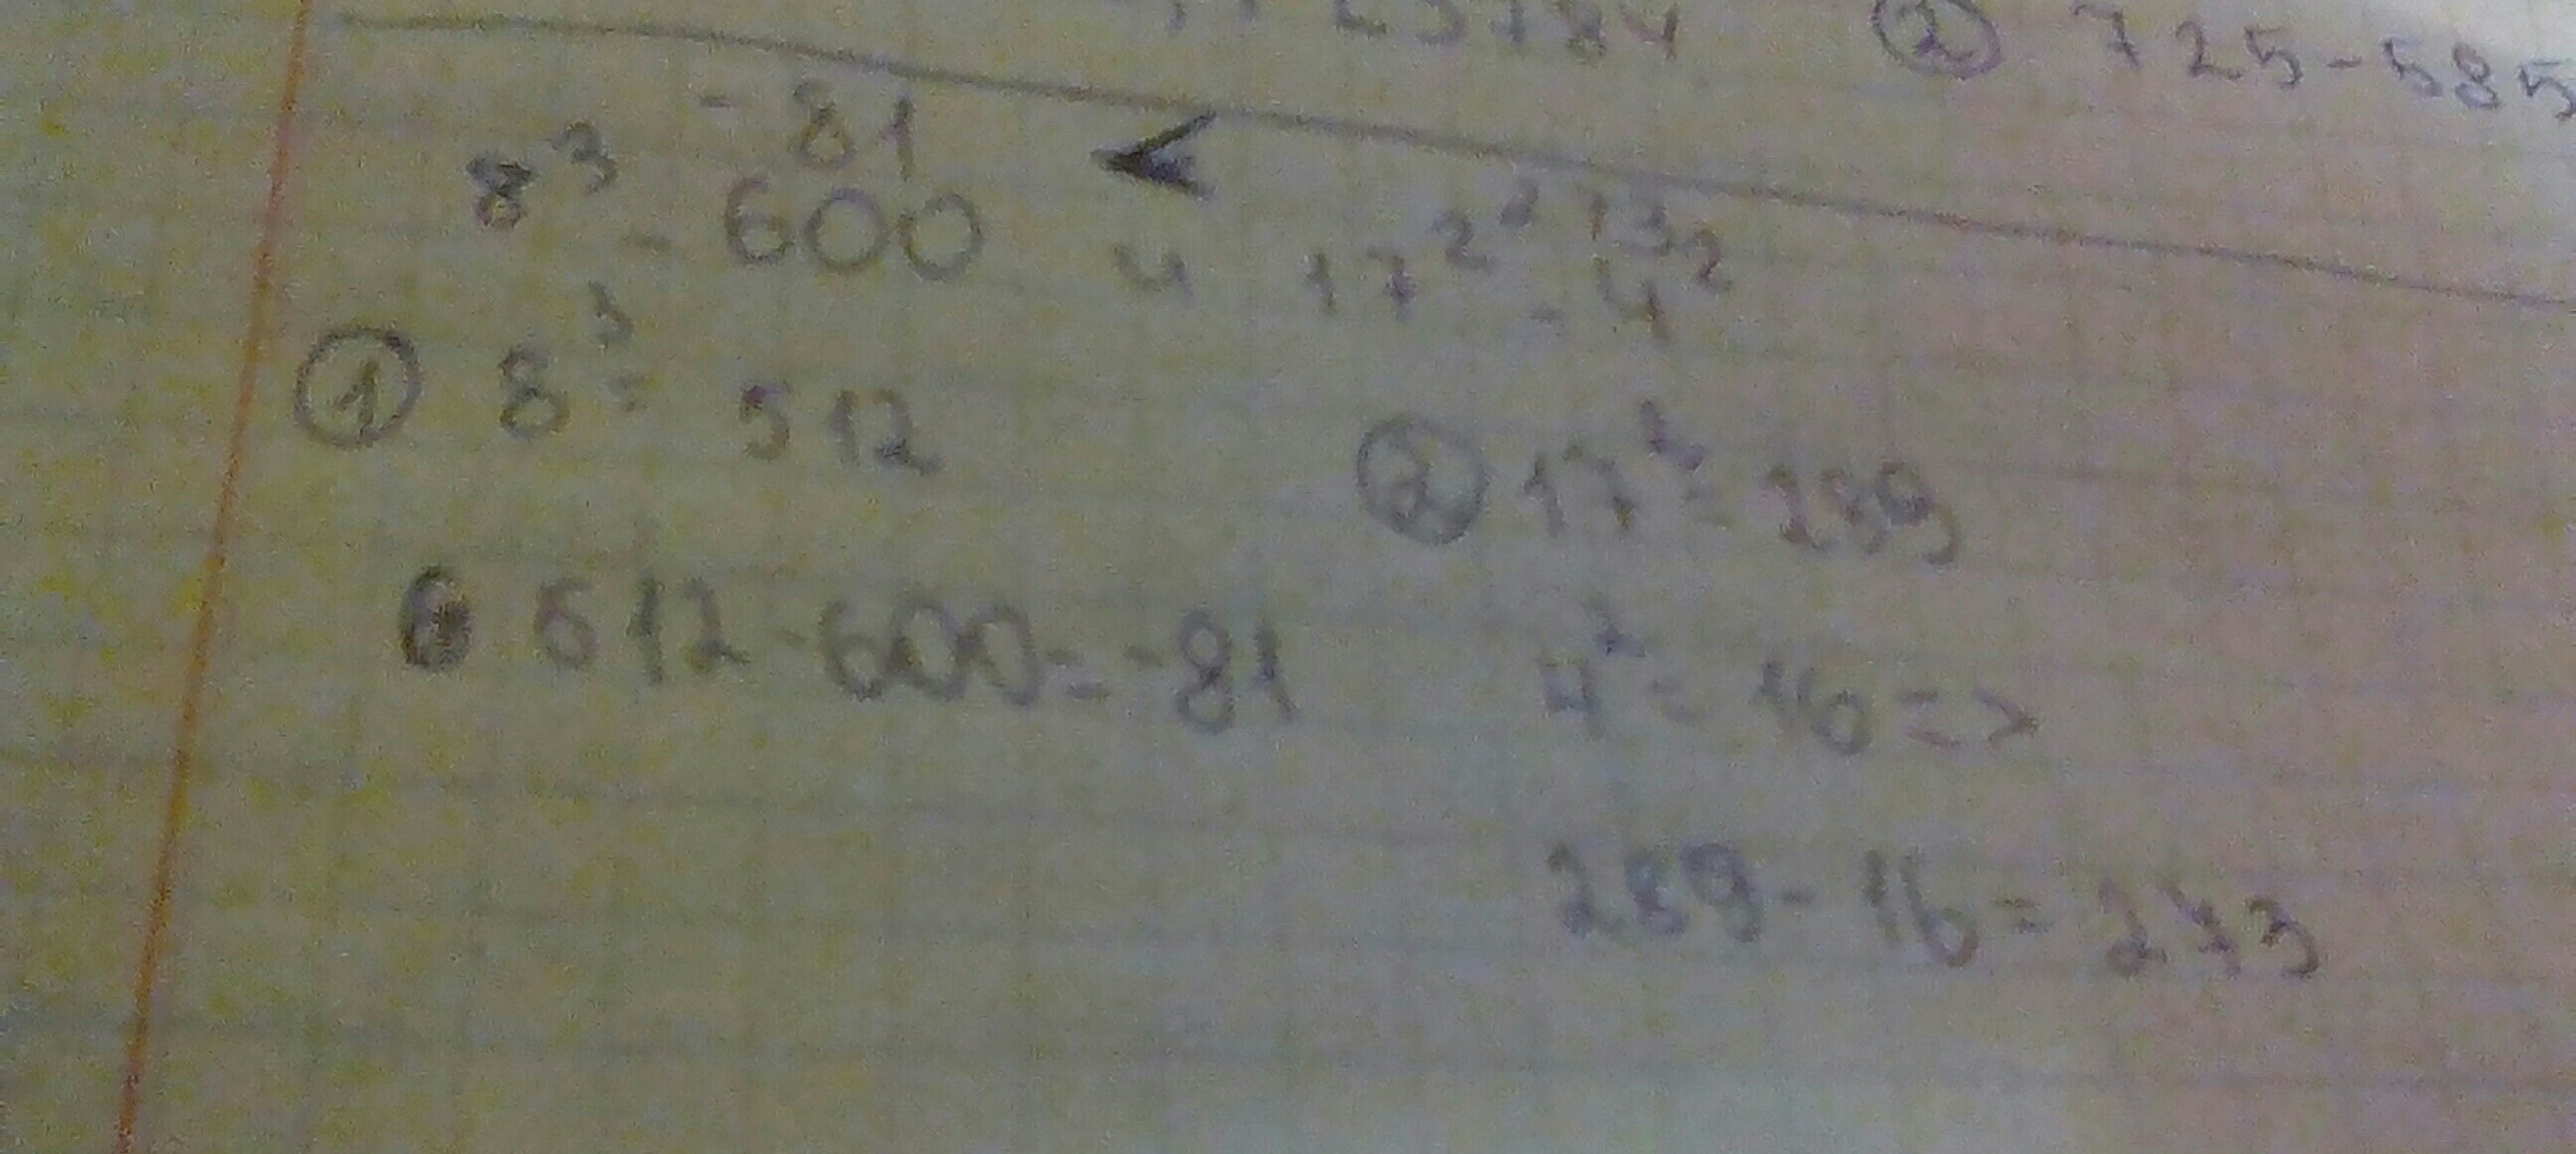 23784 ② 725-585
-81 < 273
8³ - 600 и 17² - 4²
① 8³ = 512
② 17² = 289
512-600=-81
4² = 16 =>
289 - 16 = 273